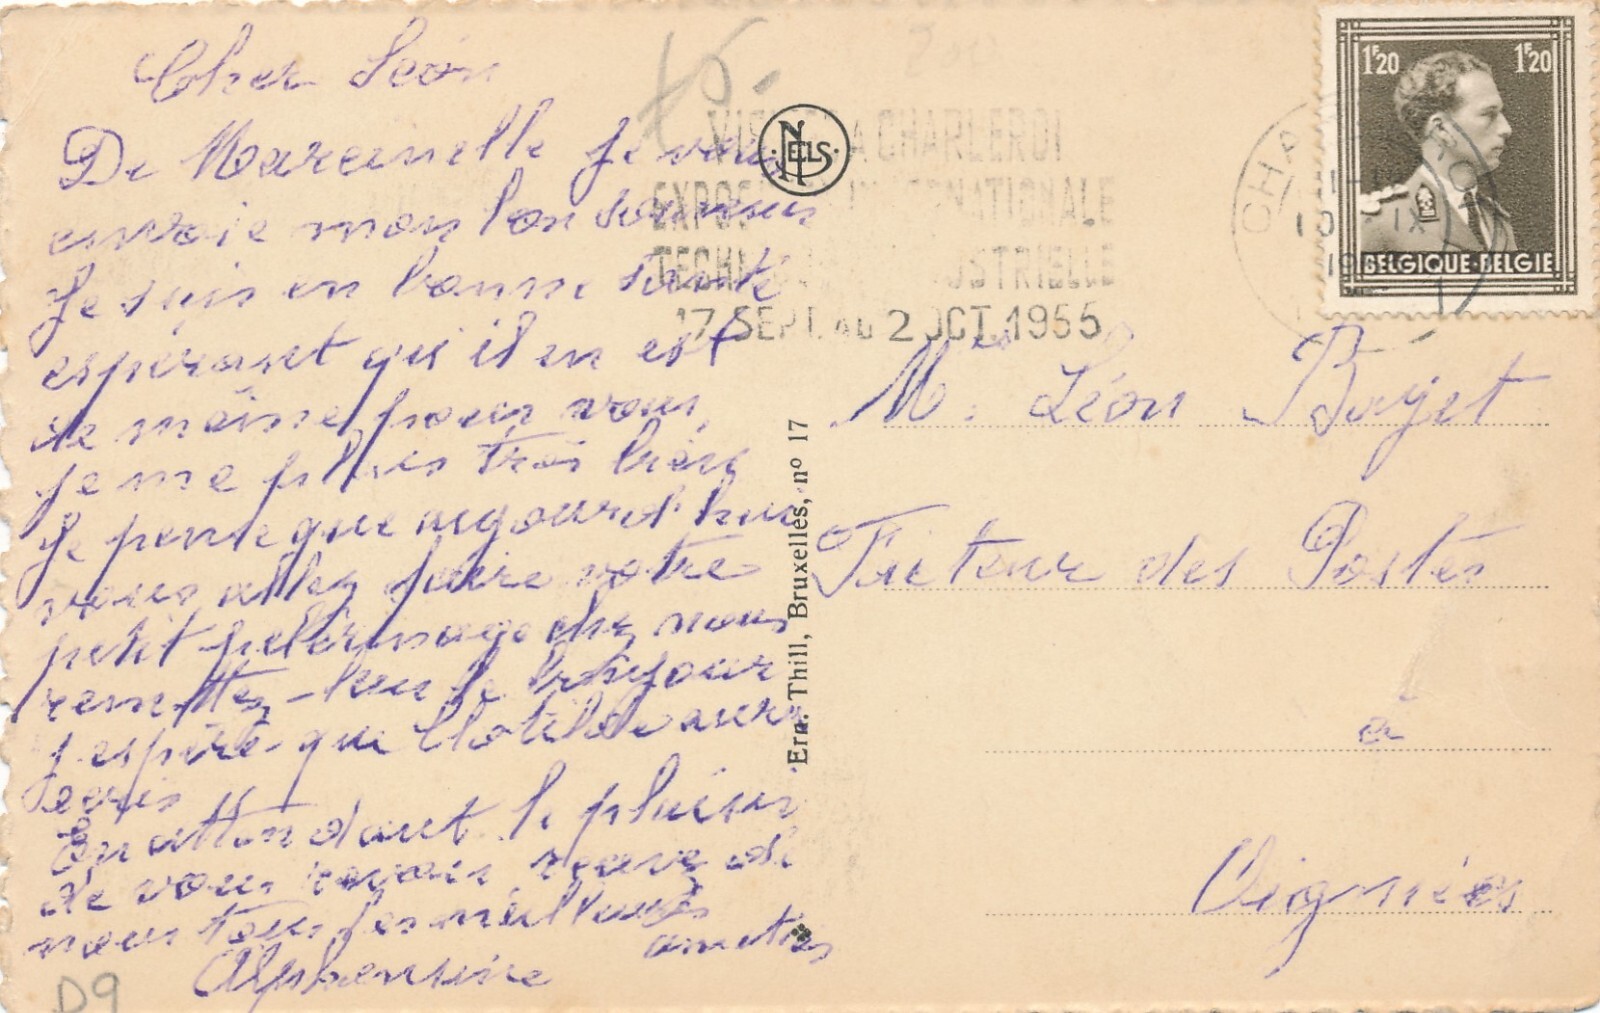 Cher Léon
De Marcinelle je vous
envoie mon bon souvenir
Je suis en bonne santé
espérant qu'il en est
de même pour vous,
je me plais très bien
Je pense que aujourd'hui
vous allez faire votre
petit pelerinage chez nous
remettez-leur le bonjour
j'espère que Clotilde aura
écris
En attendant le plaisir
de vous revoir recevez de
nous tous les meilleures
amitiés
Alphonsine
D9
15.-
NELS
VISITEZ A CHARLEROI
EXPOSITION INTERNATIONALE
TECHNIQUE INDUSTRIELLE
17 SEPT. AU 2 OCT. 1955
Ern. Thill, Bruxelles, nº 17
1F20 1F20
BELGIQUE-BELGIE
CHA
10 IX
19
Mr Léon
Facteur des Postes
à
Oignies